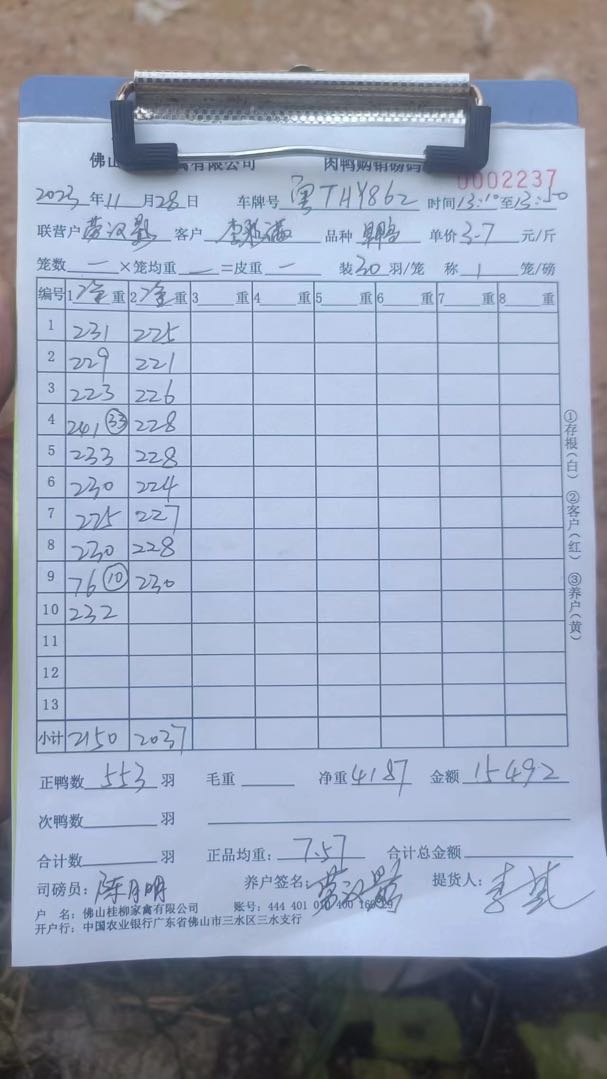 佛山 禽有限公司 肉鸭购销磅码
0002237
2023年11月28日 车牌号 粤THY862 时间13:10至13:50
联营户 客户 品种 单价3.7元/斤
笼数 一 ×笼均重 一 =皮重 一 装30羽/笼 称1笼/磅
编号 1净重 2净重 3重 4重 5重 6重 7重 8重
1 231 225
2 229 221
3 223 226
4 241 ㉝ 228
5 233 228
6 230 224
7 225 227
8 230 228
9 76 ⑩ 230
10 232
11
12
13
小计 2150 2037
正鸭数 553 羽 毛重 净重 4187 金额 15492
次鸭数 羽
合计数 羽 正品均重: 7.57 合计总金额
司磅员: 陈月明 养户签名: 提货人:
户 名: 佛山桂柳家禽有限公司 账号: 444 401 010 400 160
开户行: 中国农业银行广东省佛山市三水区三水支行
①存根(白) ②客户(红) ③养户(黄)